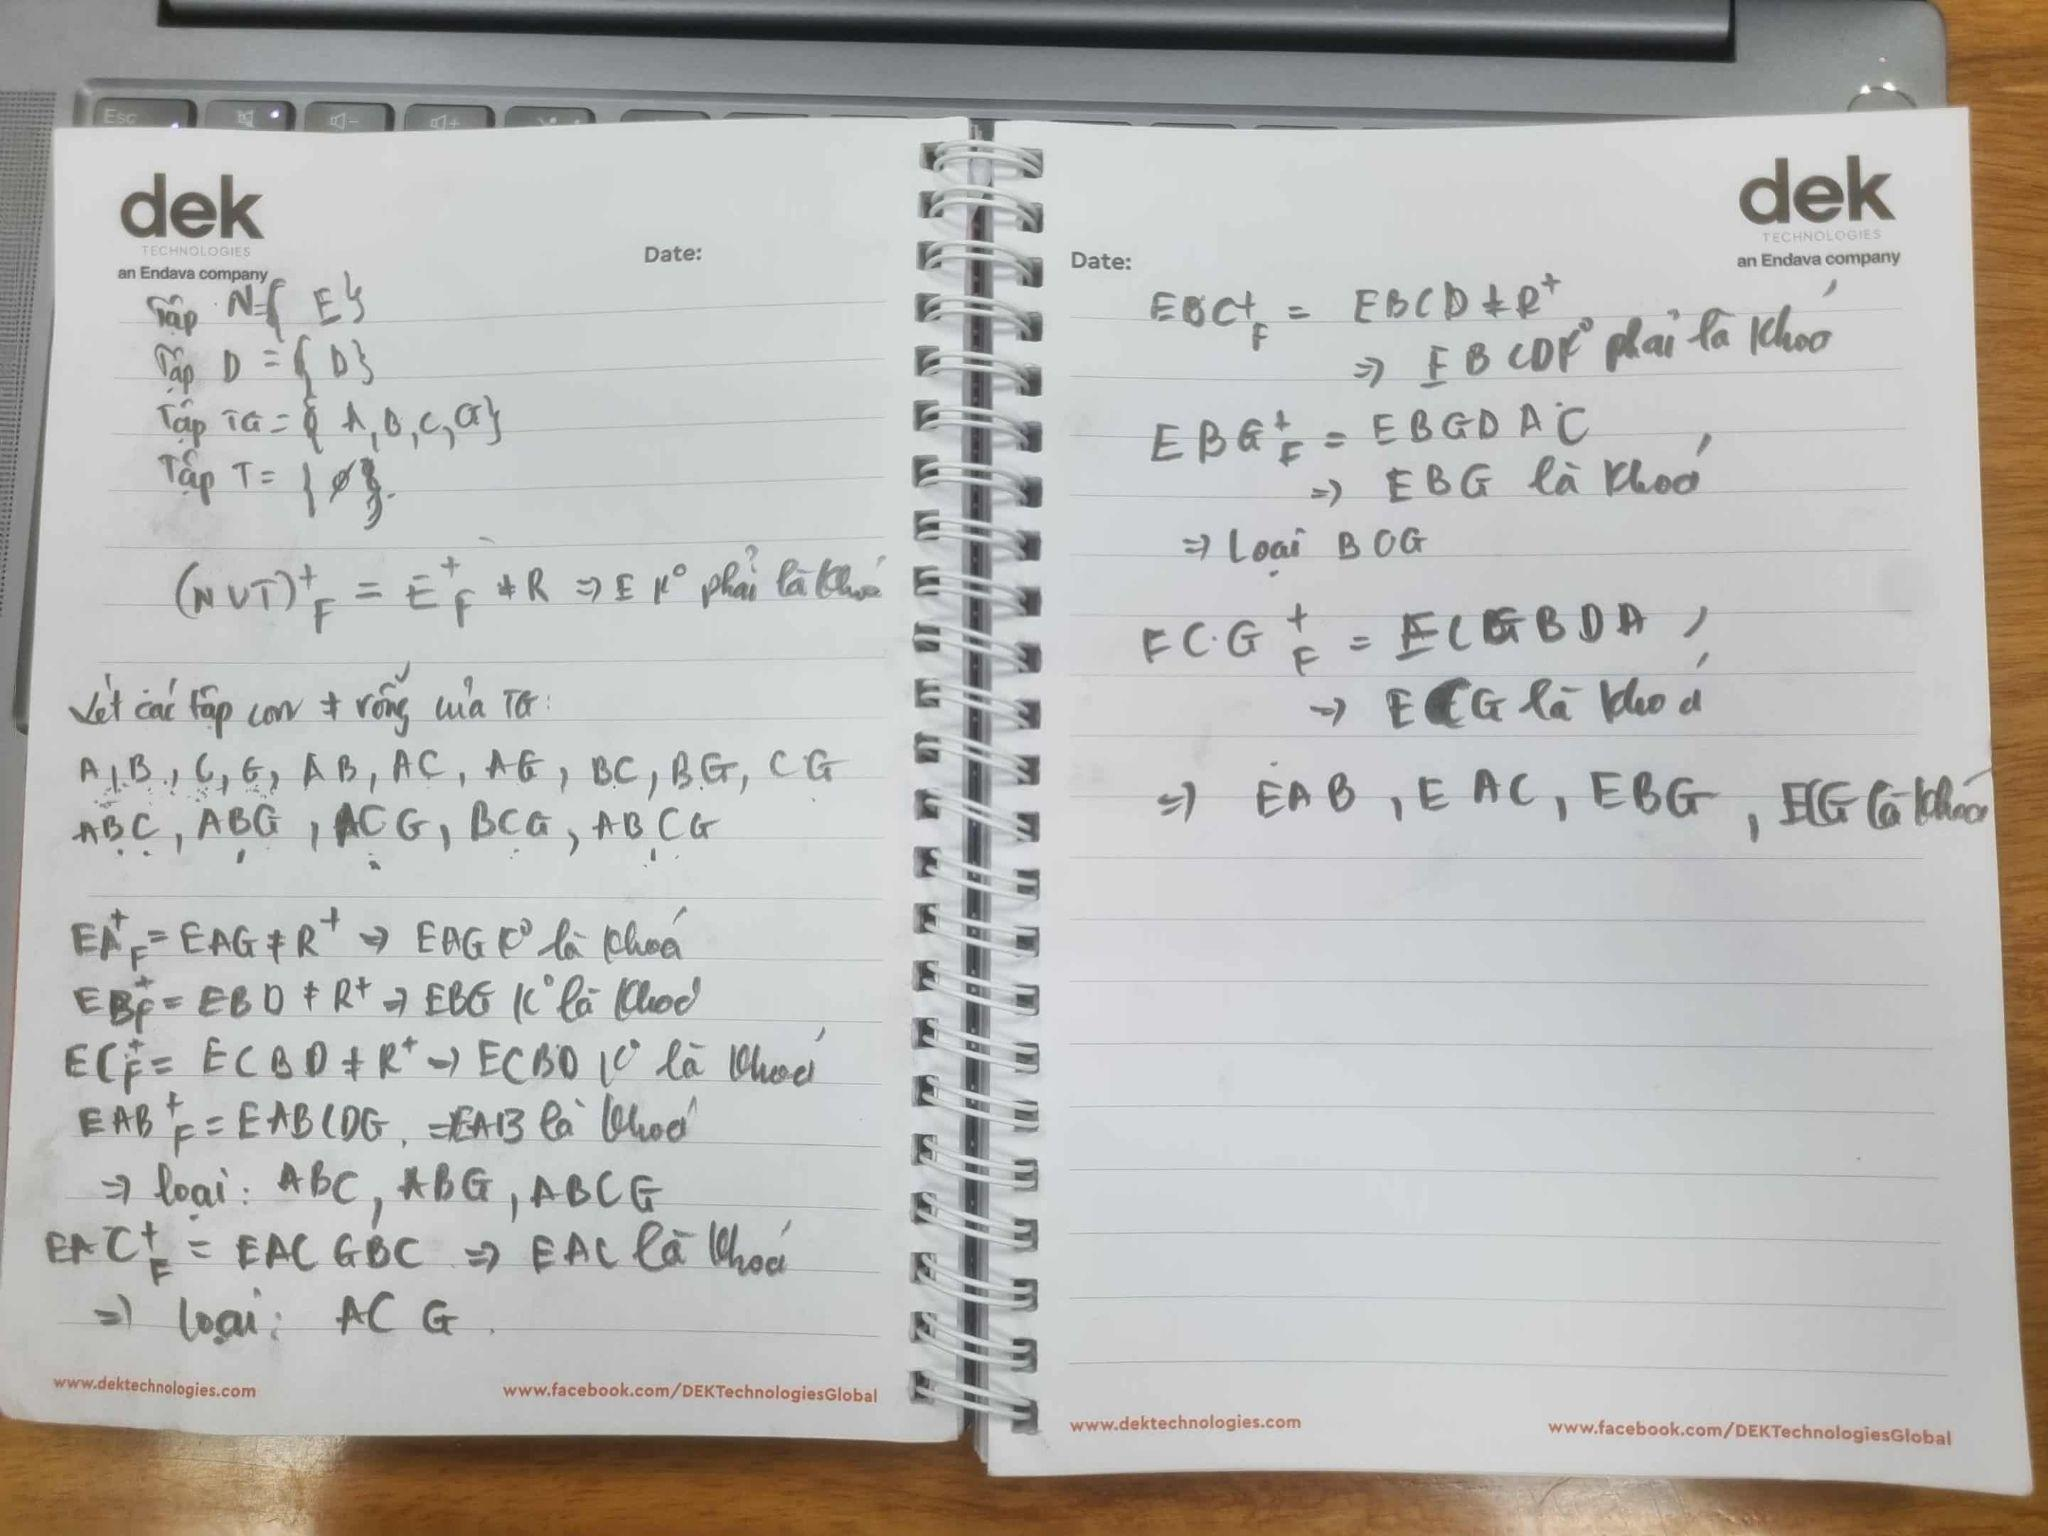 Esc
dek
TECHNOLOGIES
an Endava company
Date:
Tập N={ E}
Tập D = { D}
Tập TG = { A, B, C, G}
Tập T = { ∅}.
(N U T)+F = E+F ≠ R => E K° phải là khoá
Xét các tập con ≠ rỗng của TG:
A, B, C, G, AB, AC, AG, BC, BG, CG
ABC, ABG, ACG, BCG, ABCG
EA+F = EAG ≠ R+ => EAG K° là khoá
EB+F = EBD ≠ R+ => EBG K° là khoá
EC+F = ECBD ≠ R+ -> ECBD K° là khoá
EAB+F = EABCDG. => EAB là khoá
=> loại: ABC, ABG, ABCG
EAC+F = EACGBC => EAC là khoá
=> loại: ACG.
www.dektechnologies.com
www.facebook.com/DEKTechnologiesGlobal
dek
TECHNOLOGIES
an Endava company
Date:
EBC+F = EBCD ≠ R+
=> EBCD K° phải là khoá
EBG+F = EBGDAC
=> EBG là khoá
=> Loại BCG
EC.G+F = ECGBDA
=> ECG là khoá
=> EAB, EAC, EBG, ECG là khoá
www.dektechnologies.com
www.facebook.com/DEKTechnologiesGlobal